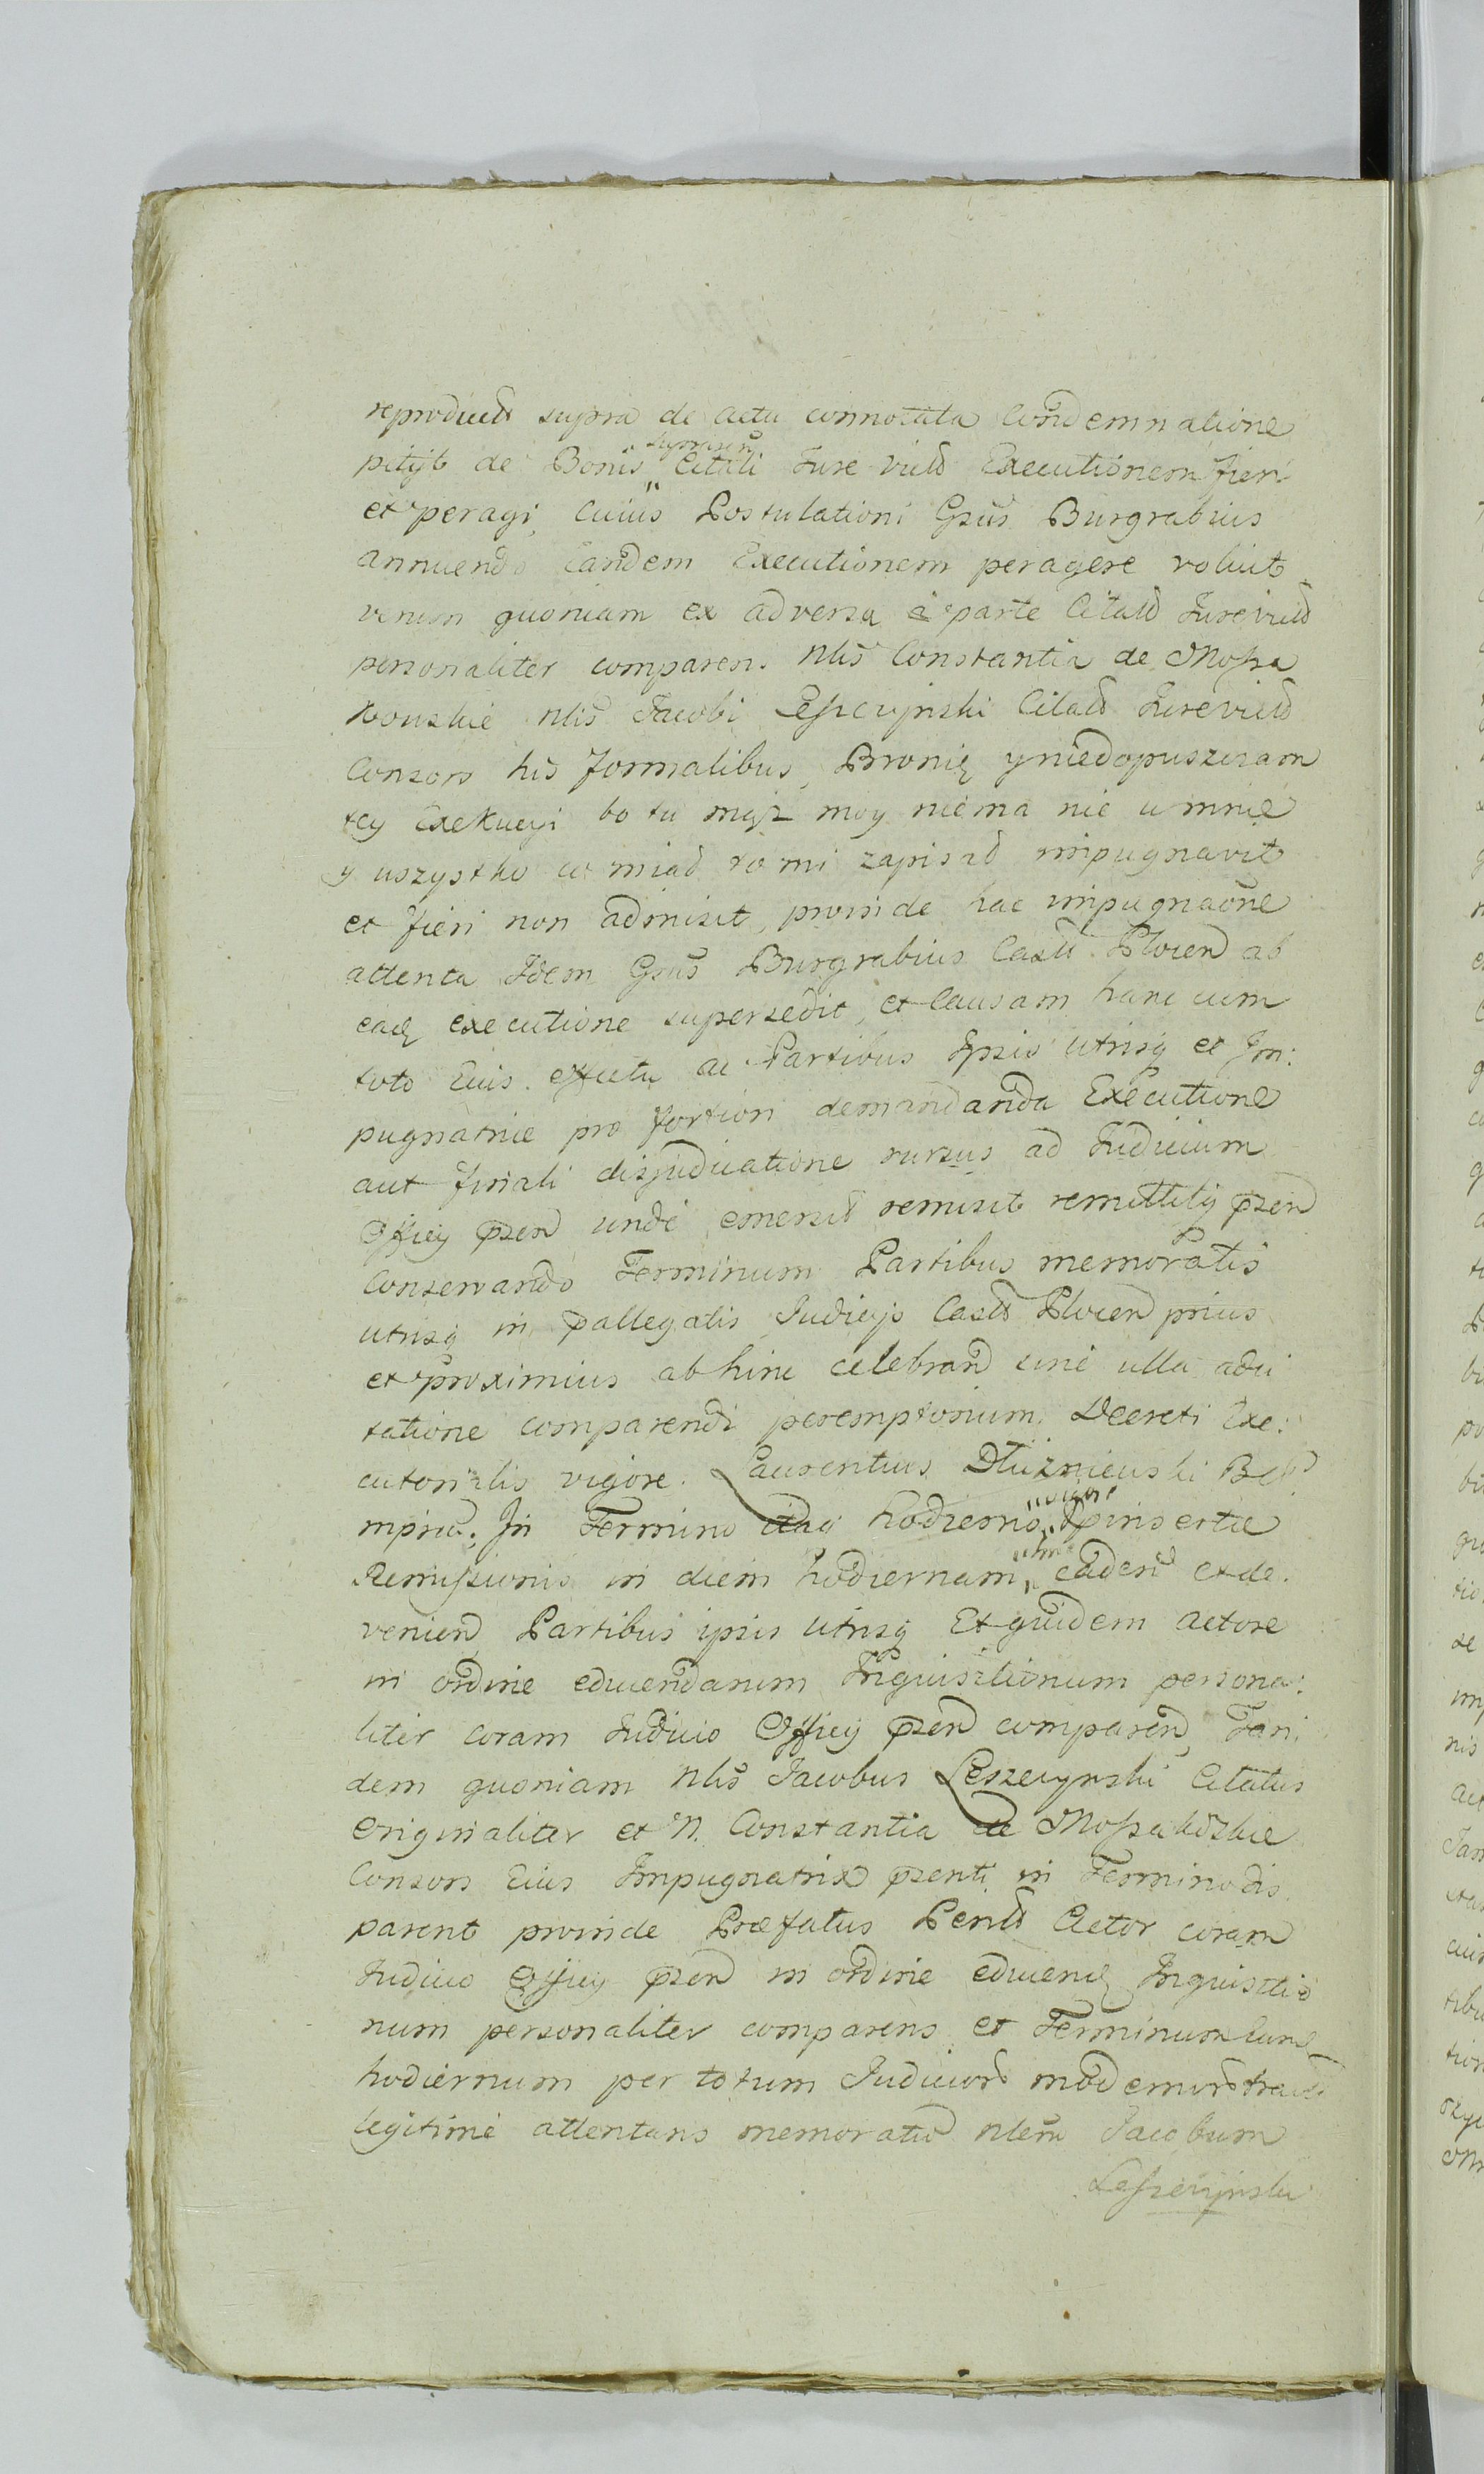 reproducta supra de actu connotata Condemnatione
petijt de Bonis Citati Jure victi Executionem fieri
et peragi, Cuius Postulationi Gsus Burgrabius
annuendo eandem Executionem peragere voluit
verum quoniam ex adversa à parte Citati Jurevicti
personaliter comparen. Nlis Constantia de Mossa
kowskie Nlis Jacobi Leszczynski Citati Jurevicti
Consors his formalibus, Bronię y niedopuszczam
tey Exekucyi bo tu mąz moy niema nic u mnie
y wszystko co miał to mi zapisał impugnavit
et fieri non admisit, proinde hac impugnaone
attenta Idem Gsus Burgrabius Castr Plocen ab
eadem executione supersedit, et Causam hanc cum
toto Eius effectu ac Partibus Ipsis utrisq et Im:
pugnatrice pro fortiori demandanda Executione
aut finali disjudicatione rursus ad Judicium
Officy psen unde emersit remisit remittitq psen
Conservando Terminum Partibus memoratis
utrisq in pallegatis Judicijs Castr Plocen prius
et proximius abhinc celebran sine ulla adci
tatione comparendi peremptorium. Decreti Exe:
cutorialis vigore. Laurentius Dłuzniewski
In Termino itaq hodierno vigore pinsertæ
Remissionis in diem hodiernam caden et de
venien Partibus ipsis utrisq Et quidem Actore
in ordine educendarum Inquisitionum persona:
liter coram Judicio Officy psen comparen, Tan:
dem quoniam Nlis Jacobus Leszczynski Citatus
Originaliter et N. Constantia de Mossakoskie
Consors Eius Impugnatrix psenti in Termino dis
parent proinde Præfatus Actor coram
Judicio Officy psen in ordine educen Inquisitio
num personaliter comparens et Terminum hunc
hodiernum per totum Judicior
legitime attentans memoratu Nlem Jacobum
Leszczynski